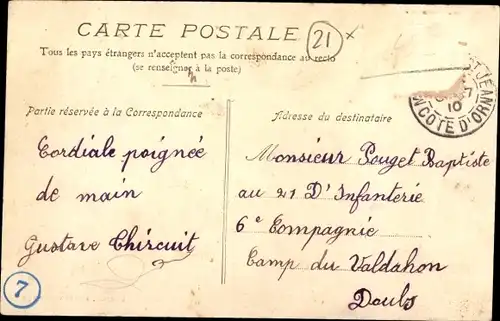 CARTE POSTALE
21
Tous les pays étrangers n'acceptent pas la correspondance au recto
(se renseigner à la poste)
Partie réservée à la Correspondance
Adresse du destinataire
Cordiale poignée
de main
Gustave Thircuit
Monsieur Pouget Baptiste
au 21 D'Infanterie
6e Compagnie
Camp du Valdahon
Doubs
ST JEAN
10
COTE D'OR
7